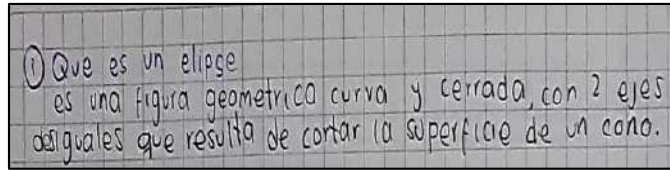 ① Que es un elipse
es una figura geometrica curva y cerrada, con 2 ejes
desiguales que resulta de cortar la superficie de un cono.